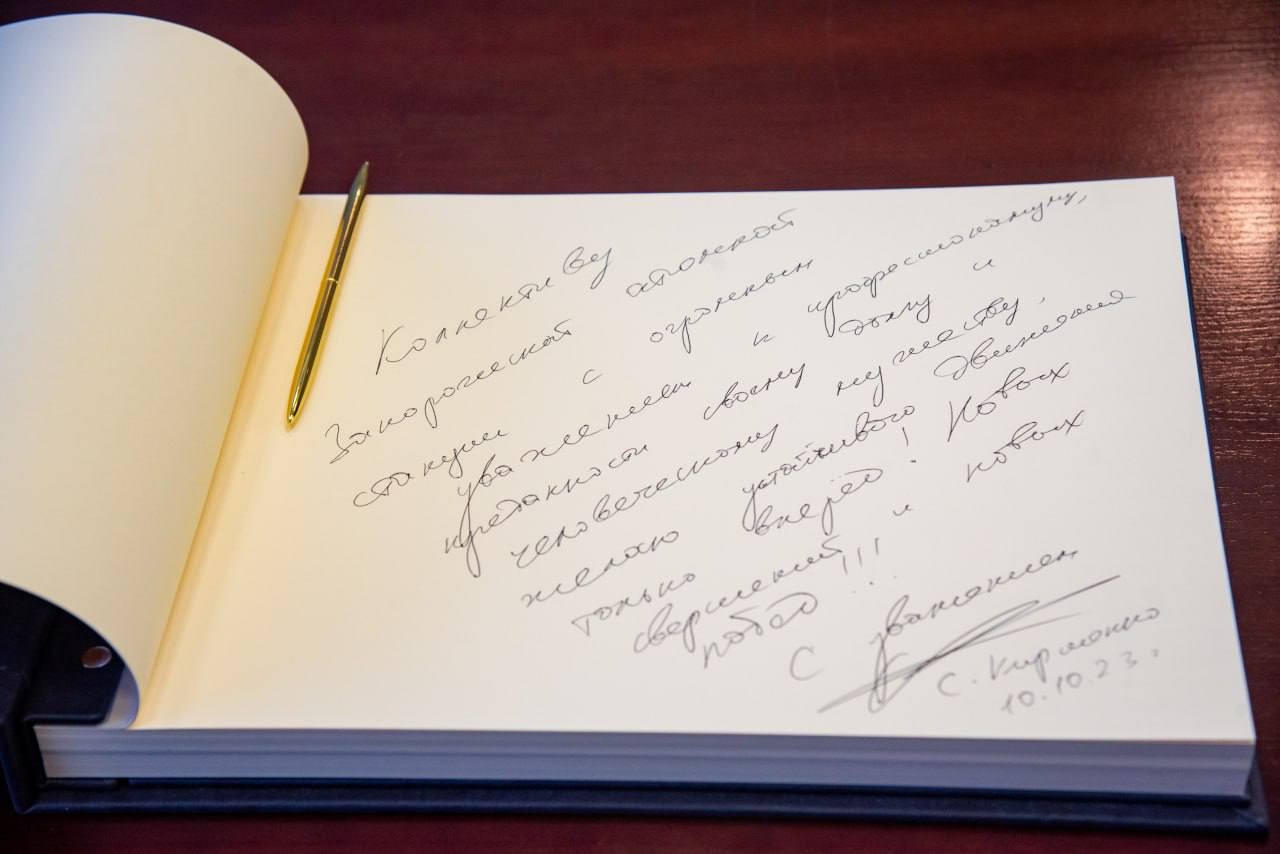 Коллективу
Запорожской атомной
станции с огромным
уважением к профессионализму,
преданности своему делу и
человеческому мужеству,
желаю устойчивого движения
только вперёд! Новых
свершений и новых
побед!!!
С уважением
С. Кириенко
10.10.23г.